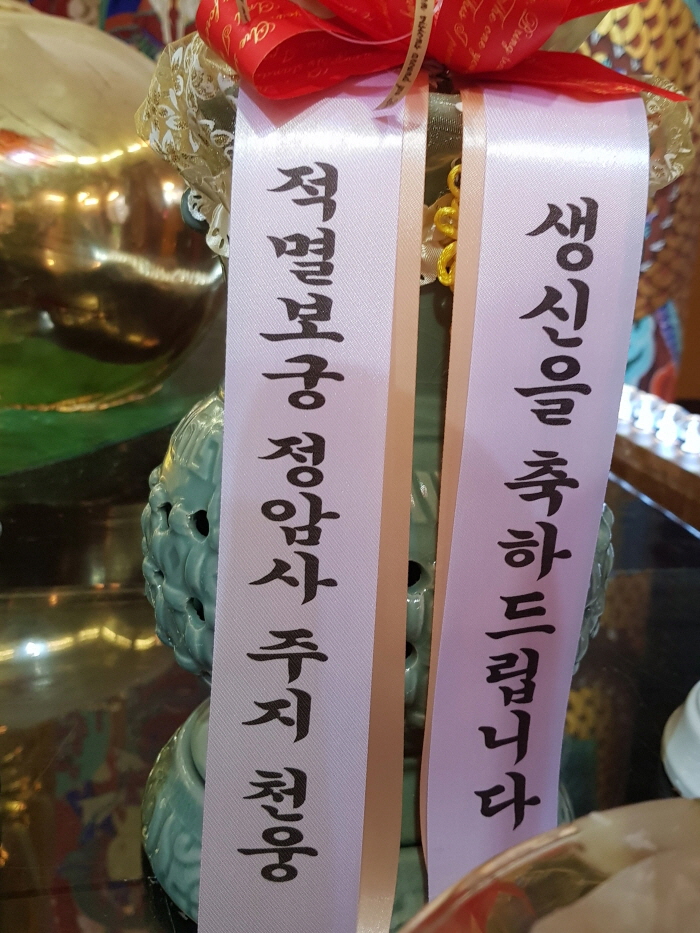 적멸보궁 정암사 주지 천웅
생신을 축하드립니다